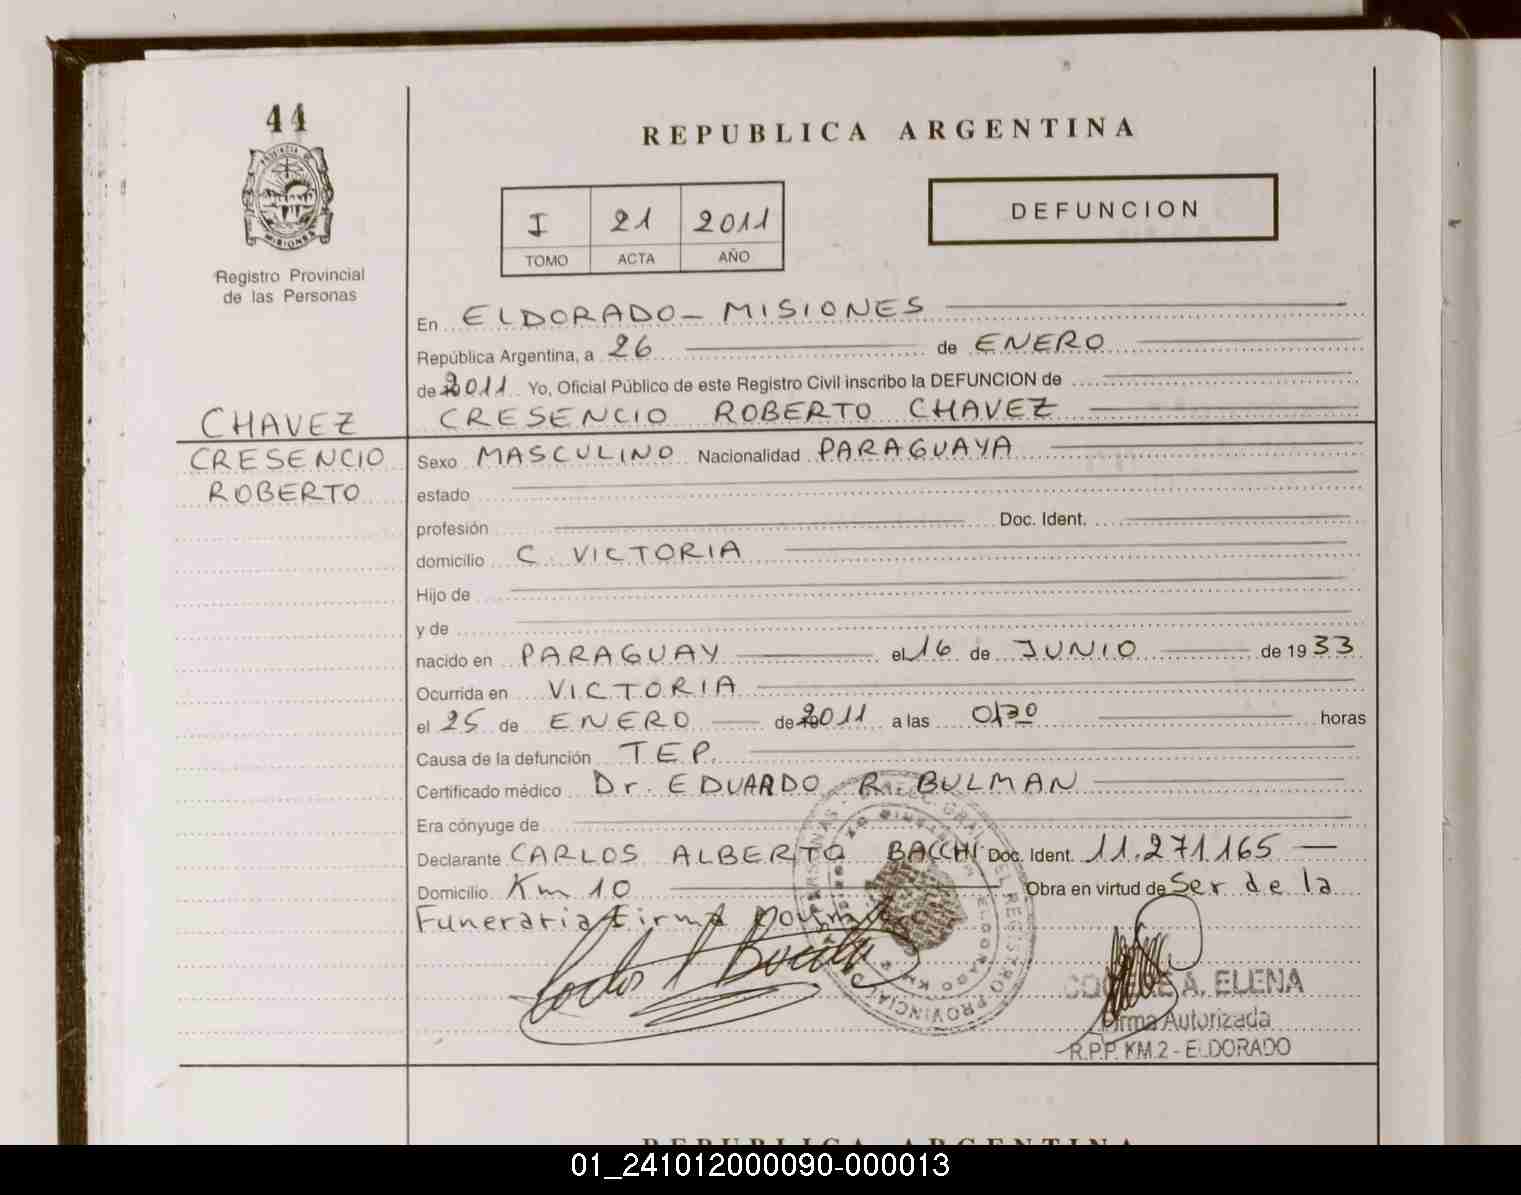 44
PROVINCIA DE
MISIONES
Registro Provincial
de las Personas
REPUBLICA ARGENTINA
I 21 2011
TOMO ACTA AÑO
DEFUNCION
En ELDORADO - MISIONES
República Argentina, a 26 de ENERO
de 2011 Yo, Oficial Público de este Registro Civil inscribo la DEFUNCION de
CRESENCIO ROBERTO CHAVEZ
CHAVEZ
CRESENCIO
ROBERTO
Sexo MASCULINO Nacionalidad PARAGUAYA
estado
profesión Doc. Ident.
domicilio C. VICTORIA
Hijo de
y de
nacido en PARAGUAY el 16 de JUNIO de 1933
Ocurrida en VICTORIA
el 25 de ENERO de 2011 a las horas
Causa de la defunción T.E.P.
Certificado médico Dr. EDUARDO R. BULMAN
Era cónyuge de
Declarante CARLOS ALBERTO BACCHI Doc. Ident. 11.271.165
Domicilio Km 10 Obra en virtud de Ser de la
Funeraria Firma
A. ELENA
Firma Autorizada
R.P.P. KM.2 - ELDORADO
REPUBLICA ARGENTINA
01_241012000090-000013